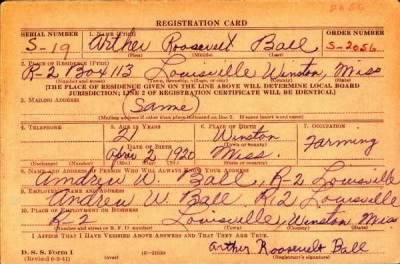 REGISTRATION CARD
SERIAL NUMBER 1. NAME (Print) ORDER NUMBER
S-19 Arther Roosevelt Ball S-2056
(First) (Middle) (Last)
2. PLACE OF RESIDENCE (Print)
R-2 Box 113 Louisville Winston, Miss
(Number and street) (Town, township, village, or city) (County) (State)
[THE PLACE OF RESIDENCE GIVEN ON THE LINE ABOVE WILL DETERMINE LOCAL BOARD
JURISDICTION; LINE 2 OF REGISTRATION CERTIFICATE WILL BE IDENTICAL]
3. MAILING ADDRESS
(Same)
[Mailing address if other than place indicated on line 2. If same insert word same]
4. TELEPHONE 5. AGE IN YEARS 6. PLACE OF BIRTH 7. OCCUPATION
21 Winston Farming
DATE OF BIRTH
April 3, 1920 Miss.
(Exchange) (Number) (Mo.) (Day) (Yr.) (State or country)
8. NAME AND ADDRESS OF PERSON WHO WILL ALWAYS KNOW YOUR ADDRESS
Andrew W. Ball, R-2 Louisville
9. EMPLOYER'S NAME AND ADDRESS
Andrew W. Ball R-2 Louisville
10. PLACE OF EMPLOYMENT OR BUSINESS
R-2 Louisville, Winston Miss
(Number and street or R. F. D. number) (Town) (County) (State)
I AFFIRM THAT I HAVE VERIFIED ABOVE ANSWERS AND THAT THEY ARE TRUE.
D. S. S. Form 1
(Revised 6-9-41)
Arther Roosevelt Ball
(Registrant's signature)